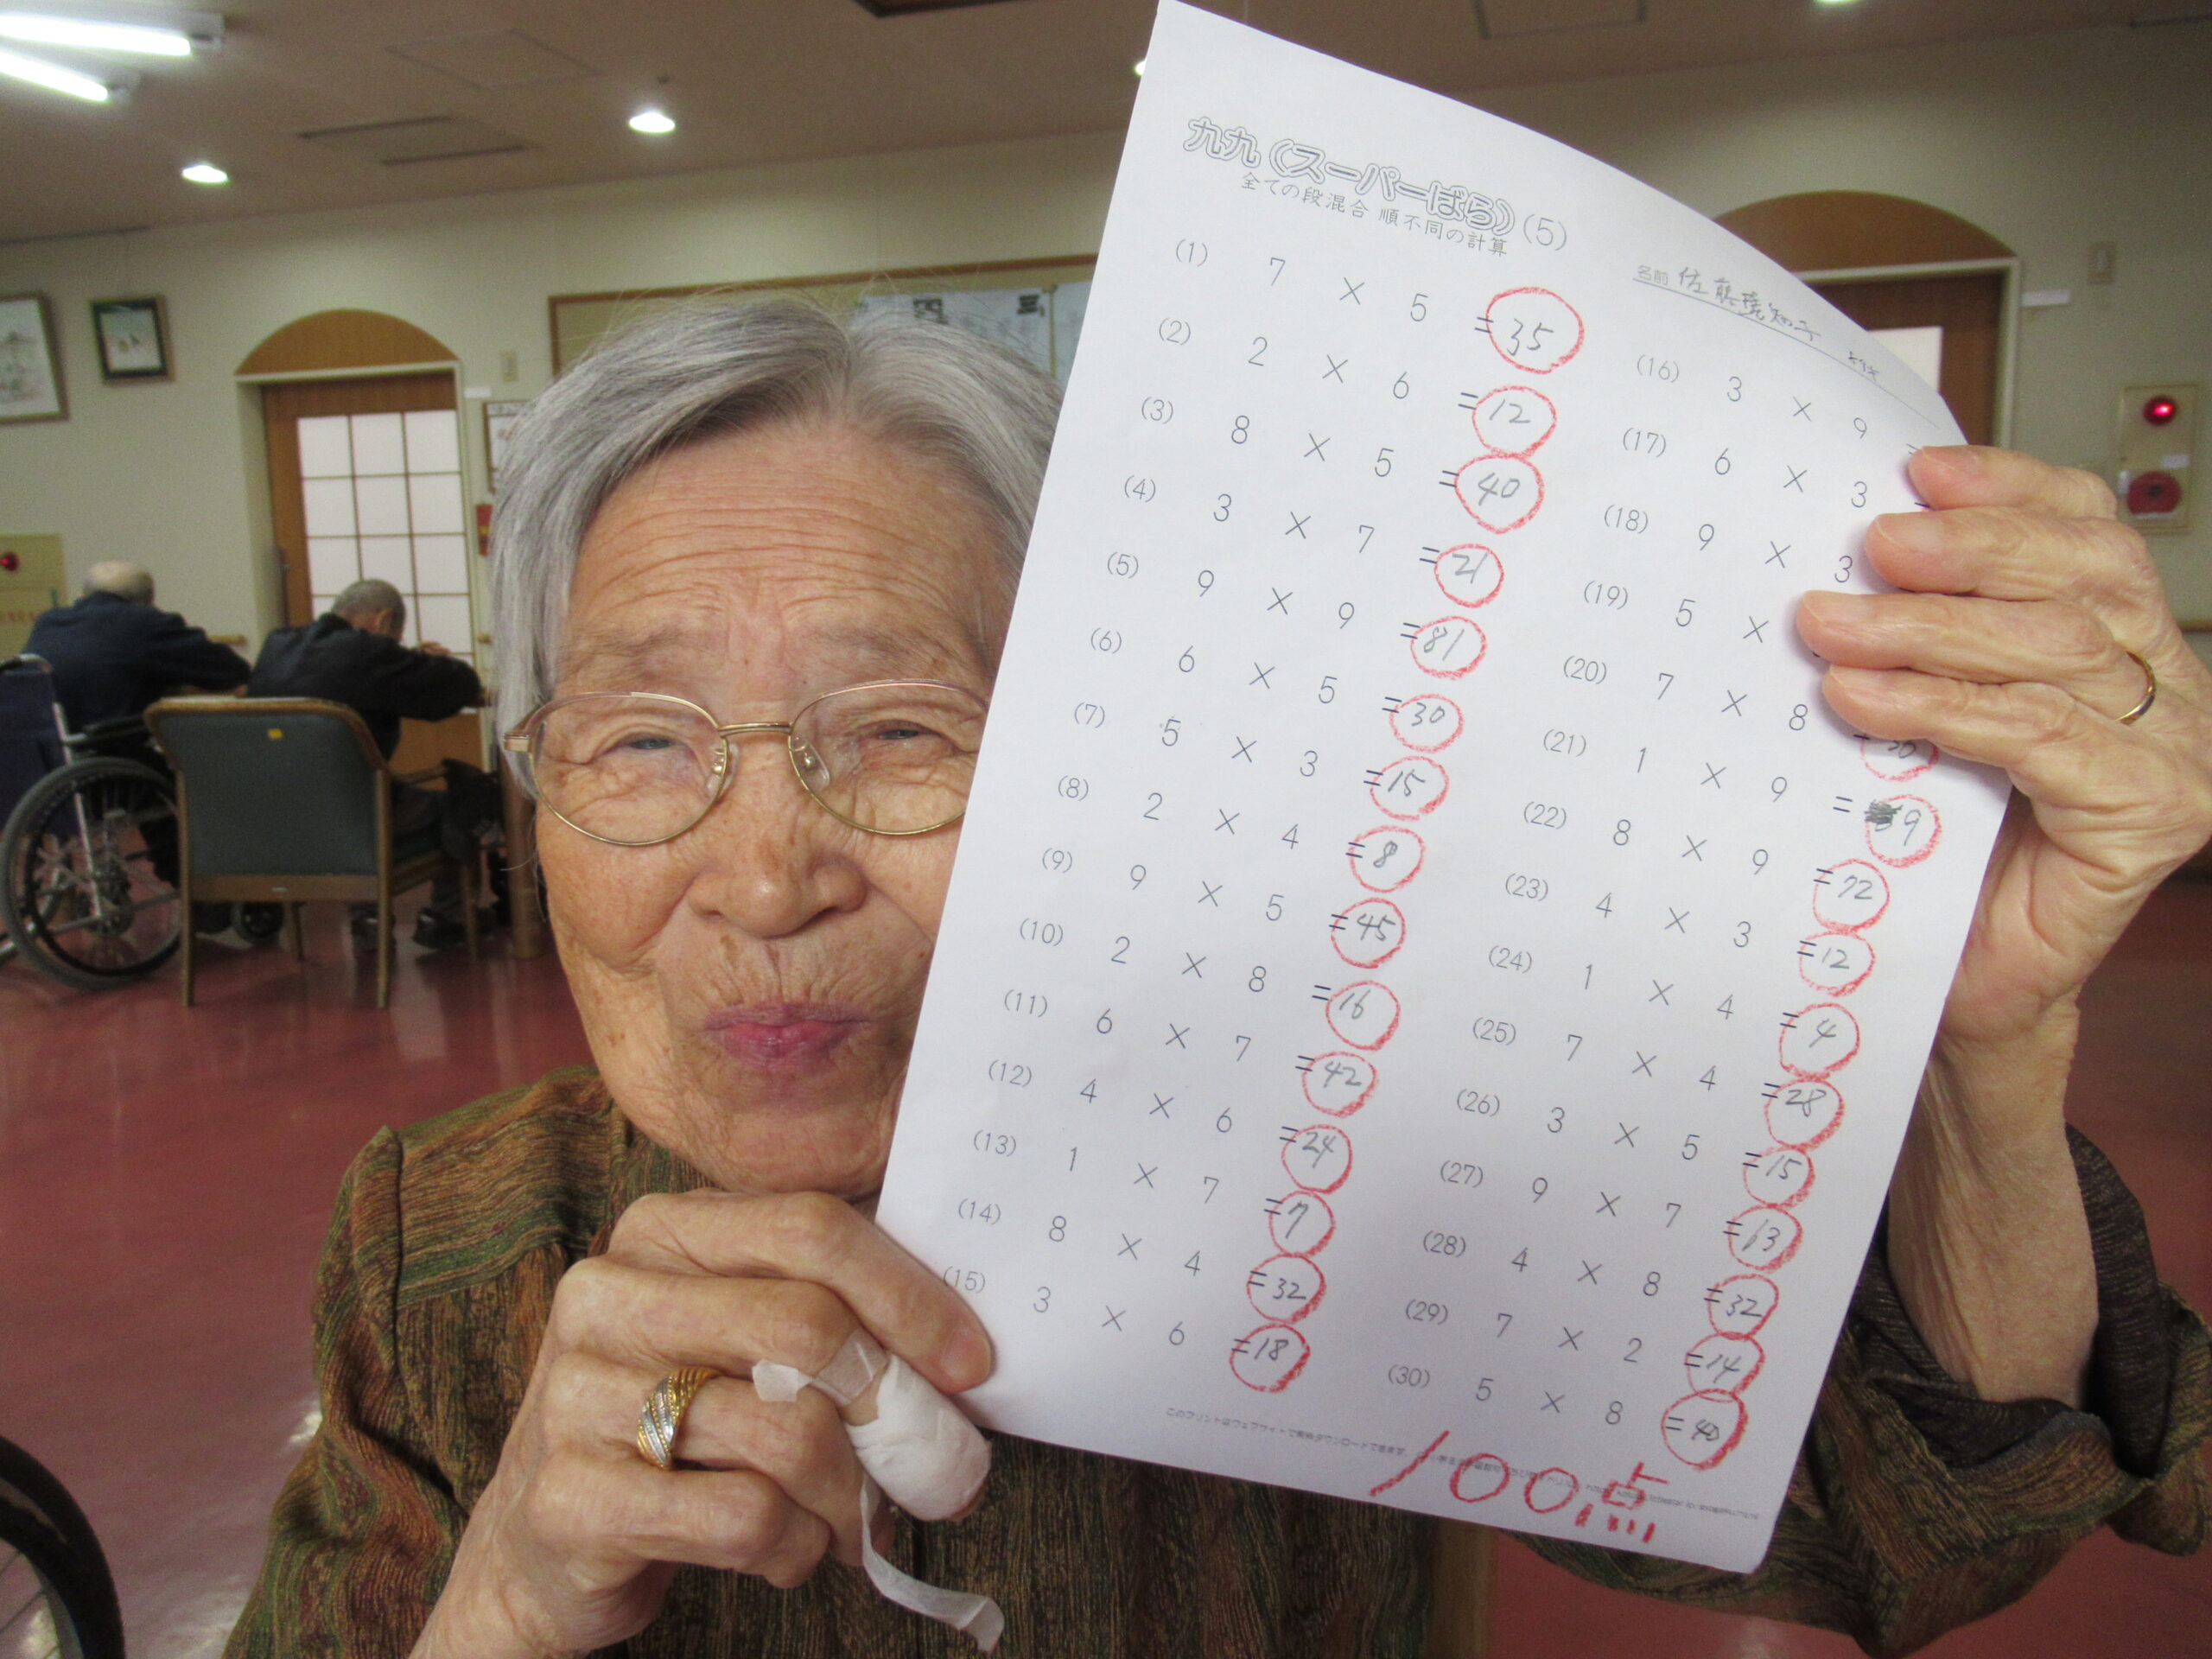 九九（スーパーばら）(5)
全ての段混合 順不同の計算
名前 佐藤
(1) 7 × 5 = 35
(2) 2 × 6 = 12
(3) 8 × 5 = 40
(4) 3 × 7 = 21
(5) 9 × 9 = 81
(6) 6 × 5 = 30
(7) 5 × 3 = 15
(8) 2 × 4 = 8
(9) 9 × 5 = 45
(10) 2 × 8 = 16
(11) 6 × 7 = 42
(12) 4 × 6 = 24
(13) 1 × 7 = 7
(14) 8 × 4 = 32
(15) 3 × 6 = 18
(16) 3 × 9 =
(17) 6 × 3
(18) 9 × 3
(19) 5 ×
(20) 7 × 8 =
(21) 1 × 9 = 9
(22) 8 × 9 = 72
(23) 4 × 3 = 12
(24) 1 × 4 = 4
(25) 7 × 4 = 28
(26) 3 × 5 = 15
(27) 9 × 7 = 13
(28) 4 × 8 = 32
(29) 7 × 2 = 14
(30) 5 × 8 = 40
100点